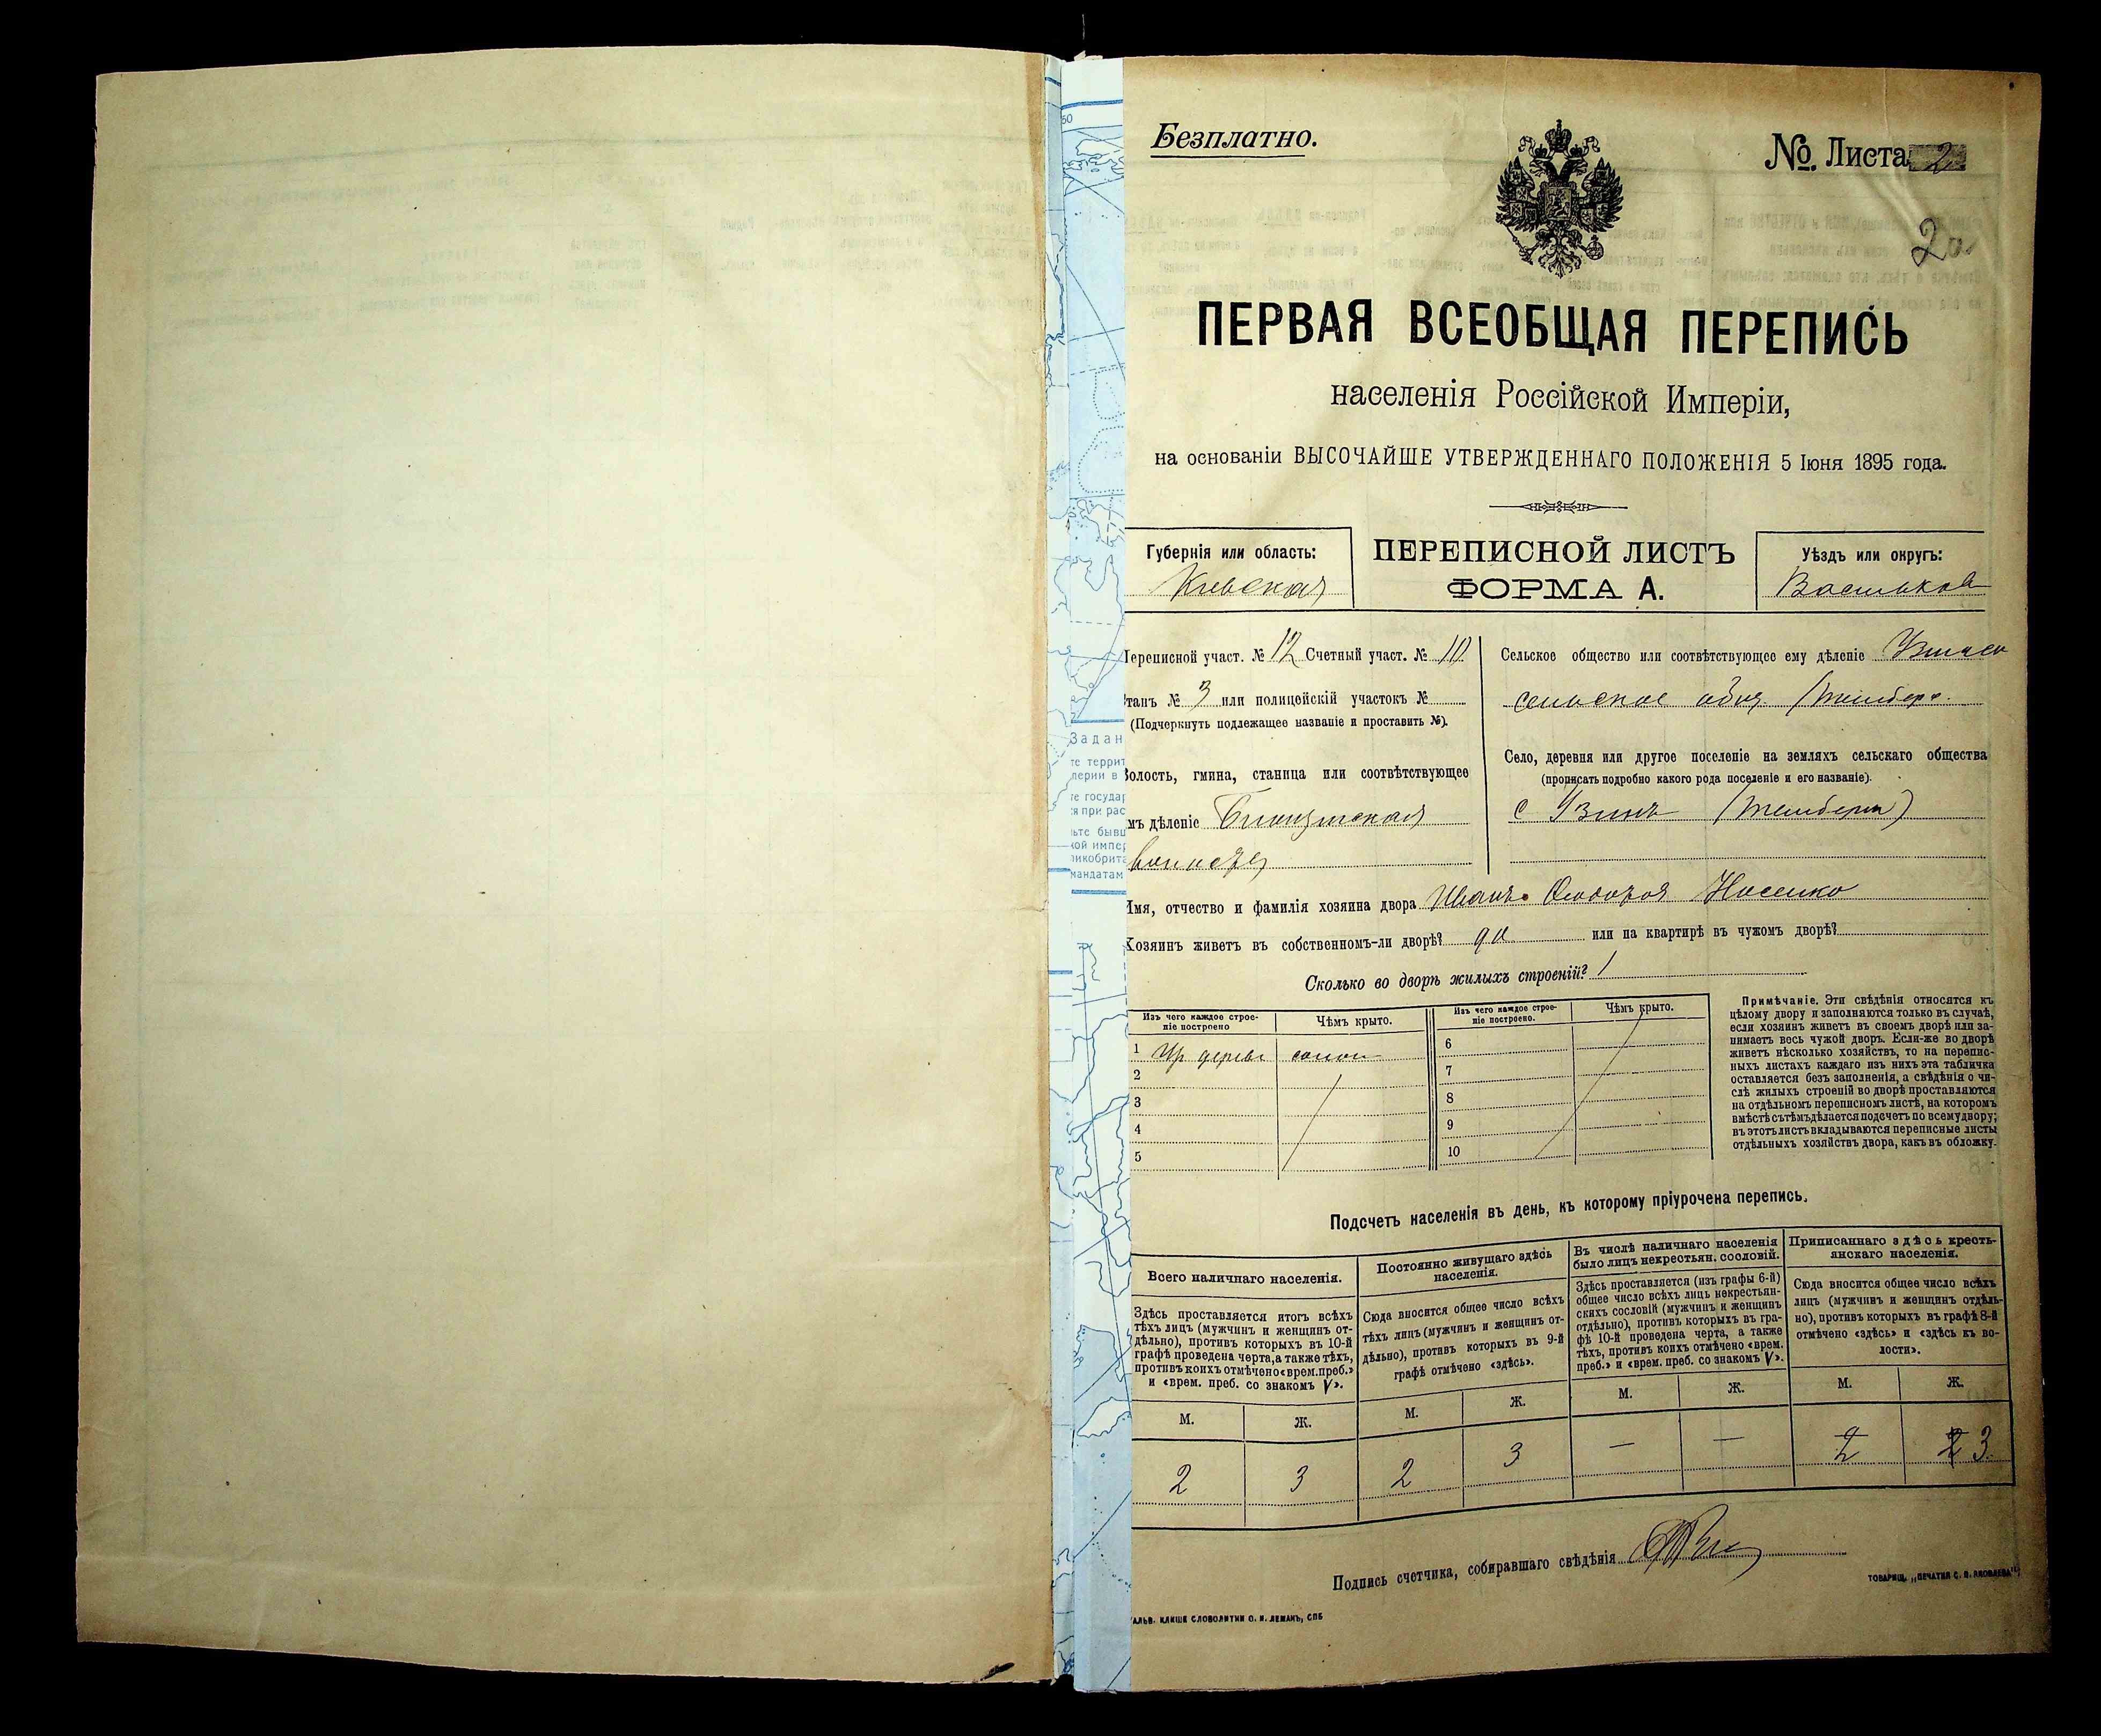 Безплатно.
№ Листа 2
20
ПЕРВАЯ ВСЕОБЩАЯ ПЕРЕПИСЬ
населенія Россійской Имперіи,
на основаніи ВЫСОЧАЙШЕ УТВЕРЖДЕННАГО ПОЛОЖЕНІЯ 5 Іюня 1895 года.
Губернія или область:
Киевская
ПЕРЕПИСНОЙ ЛИСТЪ
ФОРМА А.
Уѣздъ или округъ:
Васильков
Переписной участ. № 12 Счетный участ. № 10
Станъ № 3 или полицейскій участокъ №
(Подчеркнуть подлежащее названіе и проставить №).
Волость, гмина, станица или соотвѣтствующее
мъ дѣленіе
волость
Сельское общество или соотвѣтствующее ему дѣленіе
сельское общ.
Село, деревня или другое поселеніе на земляхъ сельскаго общества
(прописать подробно какого рода поселеніе и его названіе).
с Узинъ
Имя, отчество и фамилія хозяина двора Иванъ Носенко
Хозяинъ живетъ въ собственномъ-ли дворѣ? да или на квартирѣ въ чужомъ дворѣ?
Сколько во дворѣ жилыхъ строеній? 1
Изъ чего каждое строе-
ніе построено
Чѣмъ крыто.
Изъ чего каждое строе-
ніе построено.
Чѣмъ крыто.
1 дерева солом
2
3
4
5
6
7
8
9
10
Примѣчаніе. Эти свѣдѣнія относятся къ
цѣлому двору и заполняются только въ случаѣ,
если хозяинъ живетъ въ своемъ дворѣ или за-
нимаетъ весь чужой дворъ. Если-же во дворѣ
живетъ нѣсколько хозяйствъ, то на перепис-
ныхъ листахъ каждаго изъ нихъ эта табличка
оставляется безъ заполненія, а свѣдѣнія о чи-
слѣ жилыхъ строеній во дворѣ проставляются
на отдѣльномъ переписномъ листѣ, на которомъ
вмѣстѣ сътѣмъ дѣлается подсчетъ по всему двору;
въ этотъ листъ вкладываются переписные листы
отдѣльныхъ хозяйствъ двора, какъ въ обложку.
Подсчетъ населенія въ день, къ которому пріурочена перепись.
Всего наличнаго населенія.
Здѣсь проставляется итогъ всѣхъ
тѣхъ лицъ (мужчинъ и женщинъ от-
дѣльно), противъ которыхъ въ 10-й
графѣ проведена черта, а также тѣхъ,
противъ коихъ отмѣчено «врем. преб.»
и «врем. преб. со знакомъ V».
Постоянно живущаго здѣсь
населенія.
Сюда вносится общее число всѣхъ
тѣхъ лицъ (мужчинъ и женщинъ от-
дѣльно), противъ которыхъ въ 9-й
графѣ отмѣчено «здѣсь».
Въ числѣ наличнаго населенія
было лицъ некрестьян. сословій.
Здѣсь проставляется (изъ графы 6-й)
общее число всѣхъ лицъ некрестьян-
скихъ сословій (мужчинъ и женщинъ
отдѣльно), противъ которыхъ въ гра-
фѣ 10-й проведена черта, а также
тѣхъ, противъ коихъ отмѣчено «врем.
преб.» и «врем. преб. со знакомъ V».
Приписаннаго здѣсь кресть-
янскаго населенія.
Сюда вносится общее число всѣхъ
лицъ (мужчинъ и женщинъ отдѣль-
но), противъ которыхъ въ графѣ 8-й
отмѣчено «здѣсь» и «здѣсь къ во-
лости».
М. Ж. М. Ж. М. Ж. М. Ж.
2 3 2 3 — — 2 3
Подпись счетчика, собиравшаго свѣдѣнія
ТОВАРИЩ. „ПЕЧАТНЯ С. П. ЯКОВЛЕВА"
ГАЛЬВ. КЛИШЕ СЛОВОЛИТНИ О. И. ЛЕМАНЪ, СПБ
50
Задан
те террит
перии в
те государ
ся при рас
ьте бывш
кой импер
ликобрита
мандатам